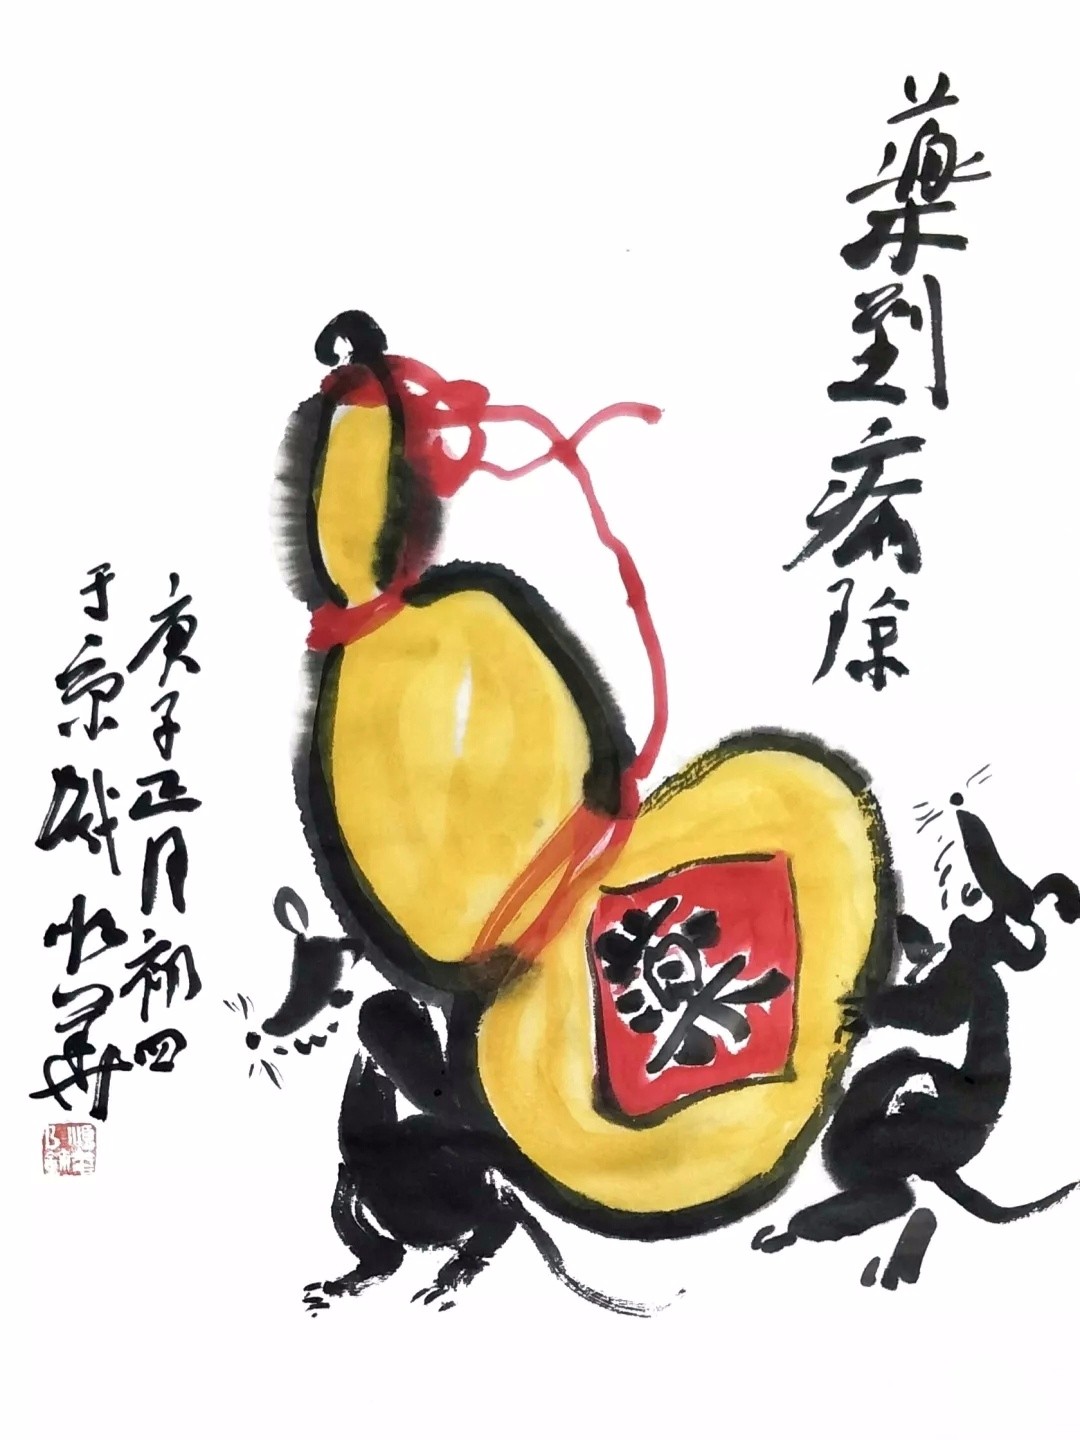 藥到病除
庚子正月初四
于京城
水華
藥